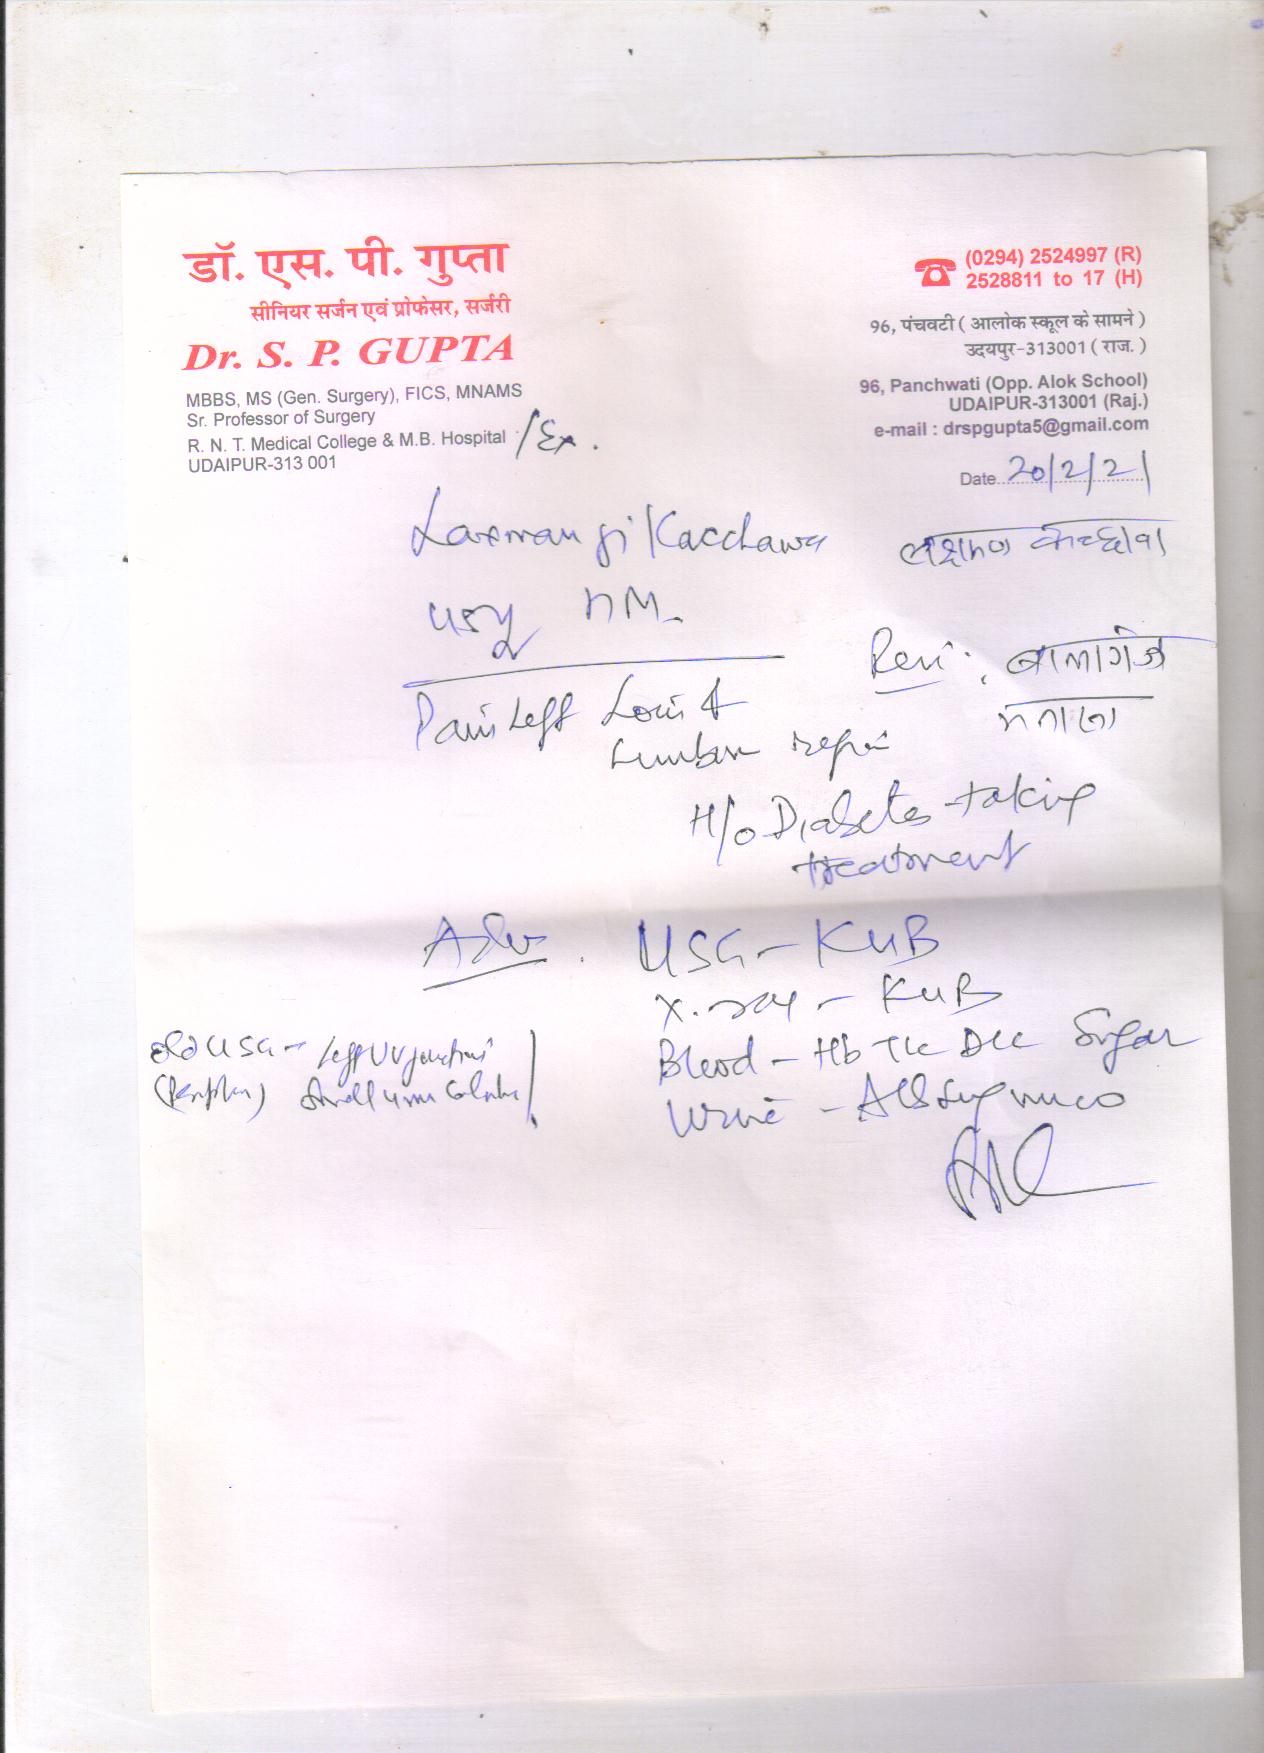 डॉ. एस. पी. गुप्ता
सीनियर सर्जन एवं प्रोफेसर, सर्जरी
Dr. S. P. GUPTA
MBBS, MS (Gen. Surgery), FICS, MNAMS
Sr. Professor of Surgery
R. N. T. Medical College & M.B. Hospital /Ex.
UDAIPUR-313 001
(0294) 2524997 (R)
2528811 to 17 (H)
96, पंचवटी ( आलोक स्कूल के सामने )
उदयपुर-313001 ( राज. )
96, Panchwati (Opp. Alok School)
UDAIPUR-313001 (Raj.)
e-mail : drspgupta5@gmail.com
Date 20/2/21
Laxman ji Kacchawa लक्ष्मण कच्छावा
Pain Left Loin &
Lumbar
H/o Diabetes - taking
treatment
Adv. USG - KUB
X-ray - KUB
Blood - Hb TLC DLC Sugar
Urine -
Old USG - Left UV junction
Small 4mm